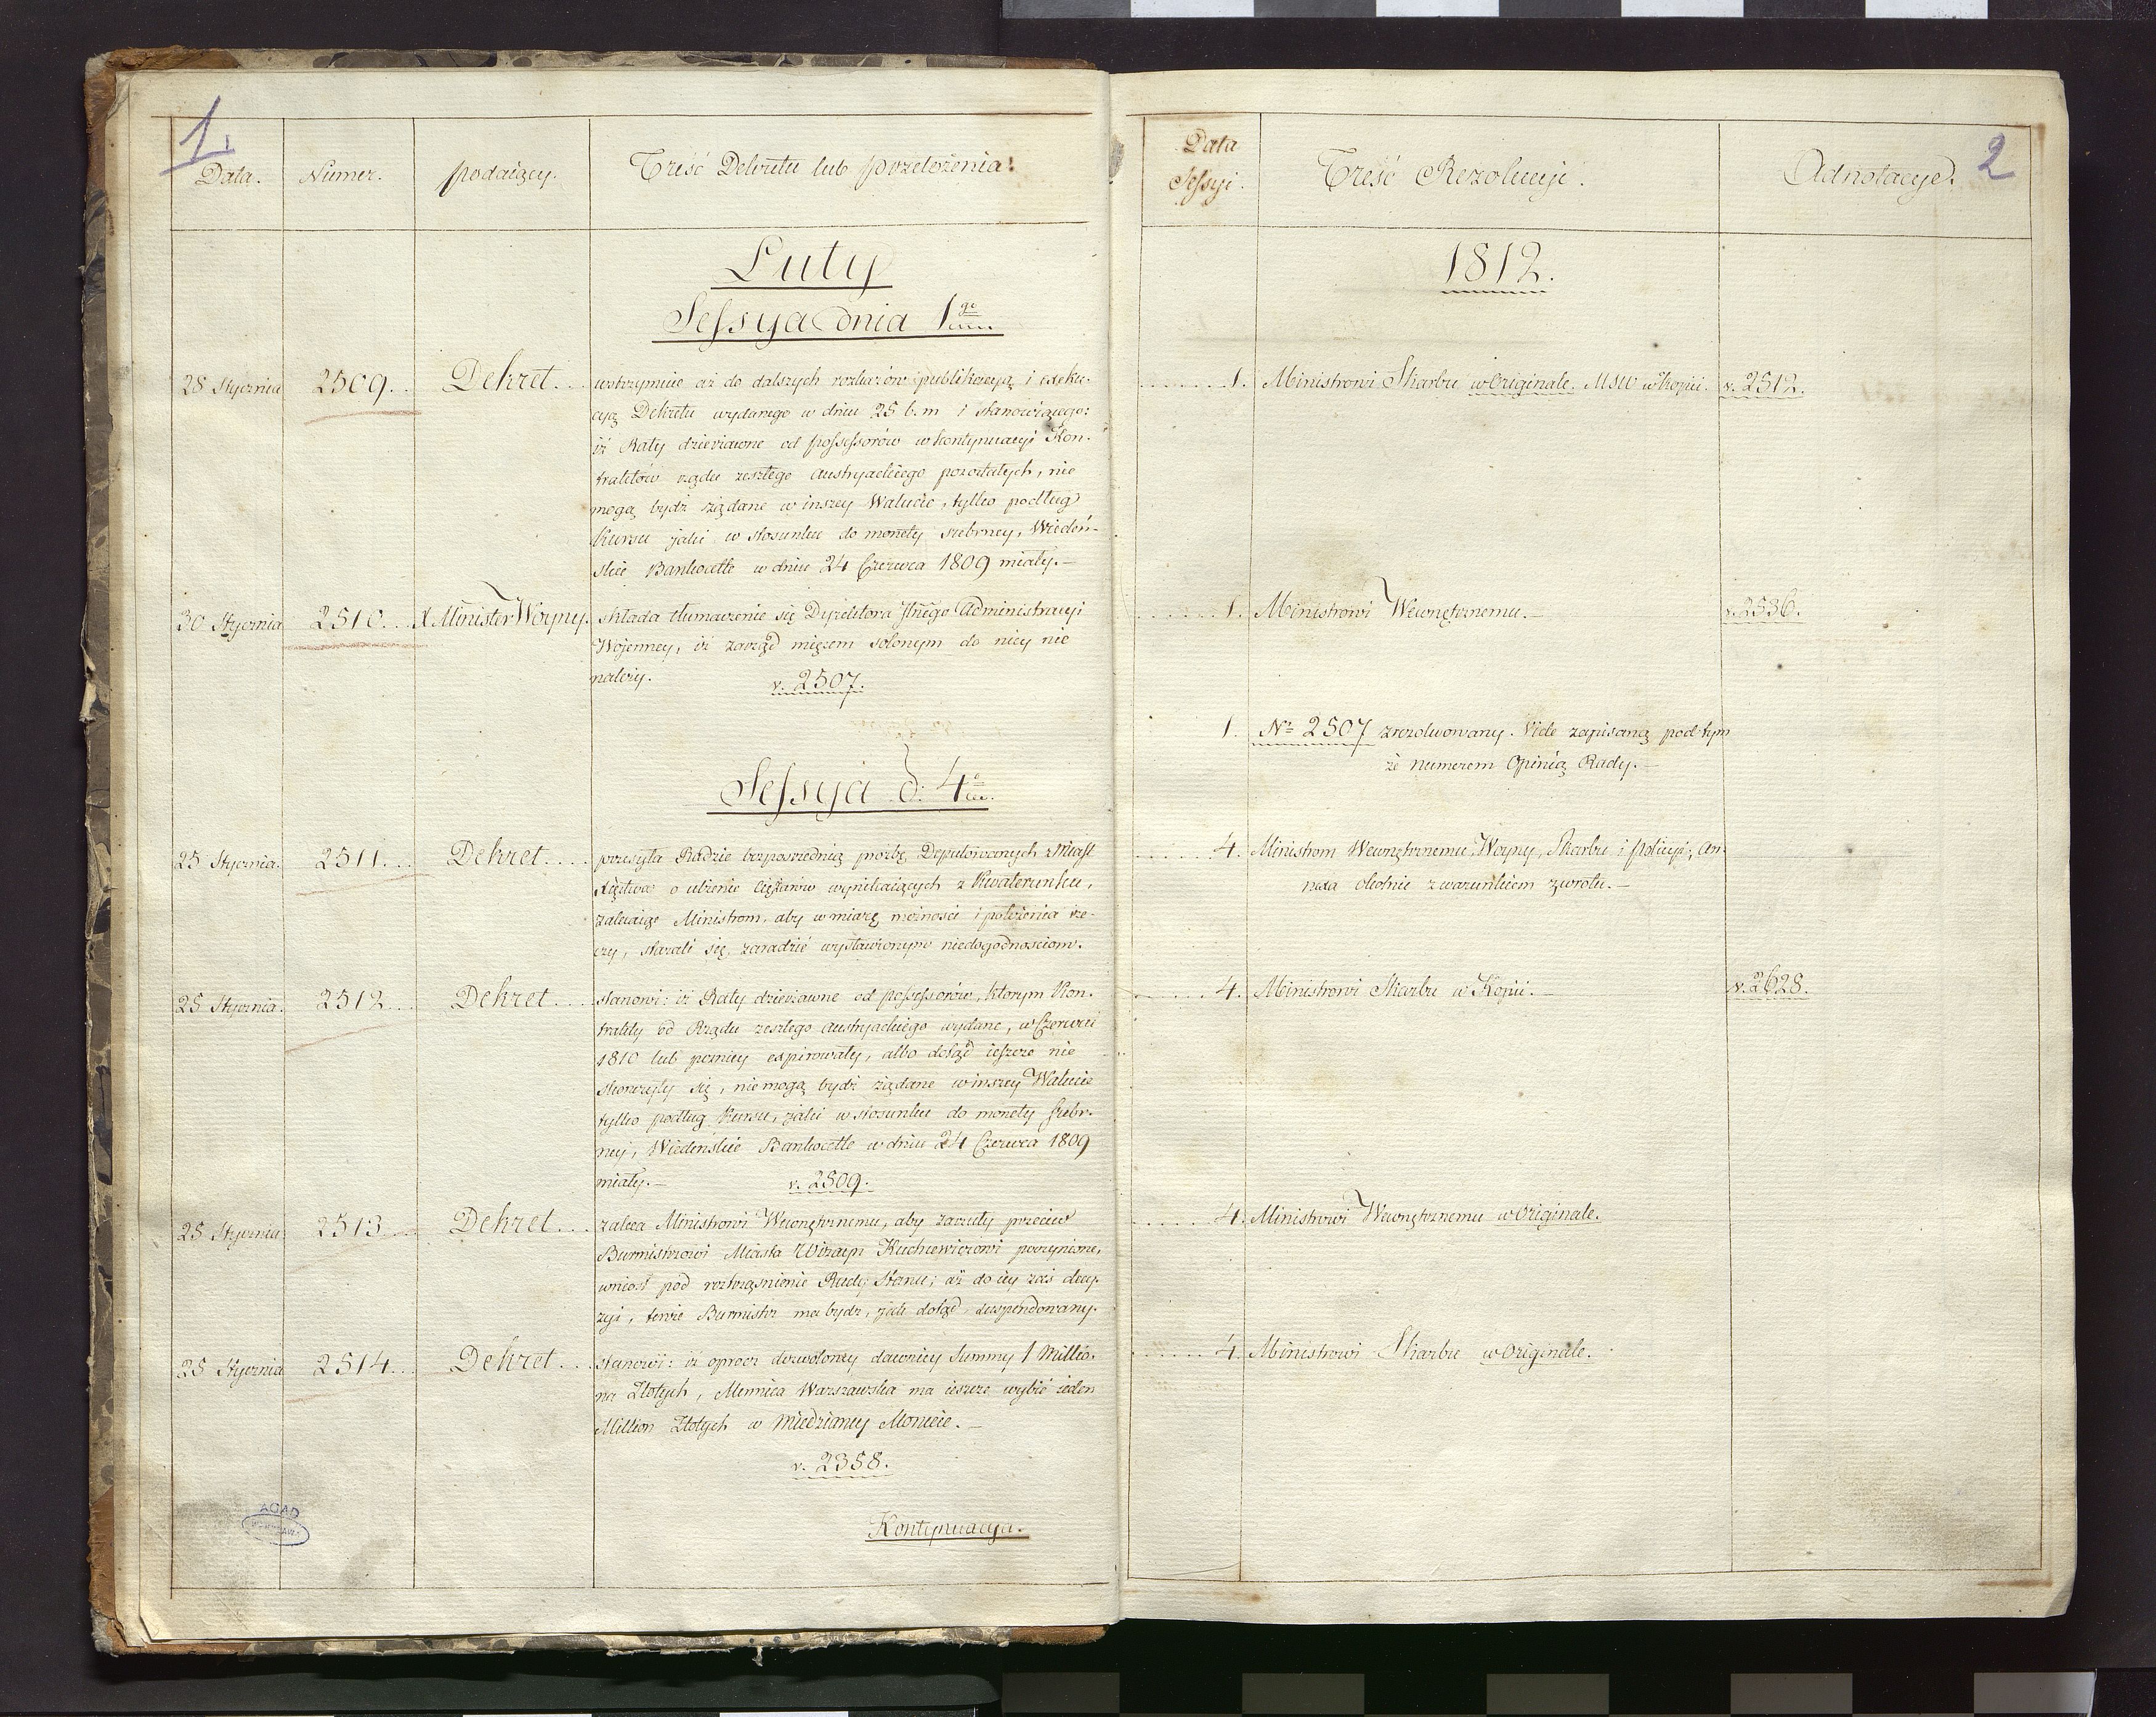 1.
Data.
Numer.
podaiący.
Treść Dekretu lub przełożenia:
Luty
Sessya dnia 1go
28 Stycznia
2509.
Dekret
wstrzymuie aż do dalszych rozkazów publikacyą i exeku-
cyą Dekretu wydanego w dniu 25 b.m i stanowiącego:
iż Raty dzierżawne od possessorów w kontynuacyi Kon-
traktów rządu zeszłego Austryackiego pozostałych, nie
mogą bydź żądane w inszey Walucie, tylko podług
Kursu jaki w stosunku do monety srebrney, Wiedeń-
skie Bankocetle w dniu 24 Czerwca 1809 miały.—
30 Stycznia
2510.
X Minister Woyny.
składa tłumaczenie się Dyrektora Jlnego Administracyi
Wojenney, iż zarząd mięsem solonym do niey nie
należy.
v. 2507.
Sessya d. 4
25 Stycznia.
2511.
Dekret
przesyła Radzie bezpośrednią prozbę Deputowanych z Miast
Xięstwa o ulżenie ciężarów wynikaiących z Kwaterunku,
zalecaiąc Ministrom, aby w miarę możności i położenia rze-
czy, starali się zaradzić wystawionym niedogodnościom.
25 Stycznia.
2512
Dekret
stanowi: iż Raty dzierżawne od possessorów, którym Kon-
trakty od Rządu zeszłego Austryackiego wydane, w Czerwcu
1810 lub pozniey expirowały, albo dotąd ieszcze nie
skonczyły się, nie mogą bydź żądane w inszey Walucie
tylko podług Kursu, jaki w stosunku do monety srebr-
ney, Wiedenskie Bankocetle w dniu 24 Czerwca 1809
miały.—
v. 2509.
25 Stycznia
2513
Dekret
zaleca Ministrowi Wewnętrznemu, aby zarzuty przeciw
Burmistrzowi Miasta Kuchcewiczowi poczynione,
wniosł pod roztrząśnienie Rady Stanu; aż do iey zaś decy-
zyi, tenże Burmistrz ma bydz, jak dotąd, suspendowany.
25 Stycznia
2514
Dekret
stanowi: iż oprócz dozwoloney dawniey Summy 1 Millio-
na Złotych, Mennica Warszawska ma ieszcze wybić ieden
Million Złotych w Miedzianey Monecie.—
v. 2358.
Kontynuacya.
AGAD
2
Data
Sessyi.
Treść Rezolucyi.
Adnotacye.
1812.
1. Ministrowi Skarbu w Originale. MSW w kopii.
v. 2512.
1. Ministrowi Wewnętrznemu.—
v. 2536.
1. Nr 2507 zrezolwowany. Vide zapisaną pod tym
że numerem Opinią Rady.—
4. Ministrom Wewnętrznemu, Woyny, Skarbu i Policyi, An-
nexa okolnie z warunkiem zwrotu.—
4. Ministrowi Skarbu w Kopii.—
v. 2628.
4. Ministrowi Wewnętrznemu w Originale.
4. Ministrowi Skarbu w Originale.